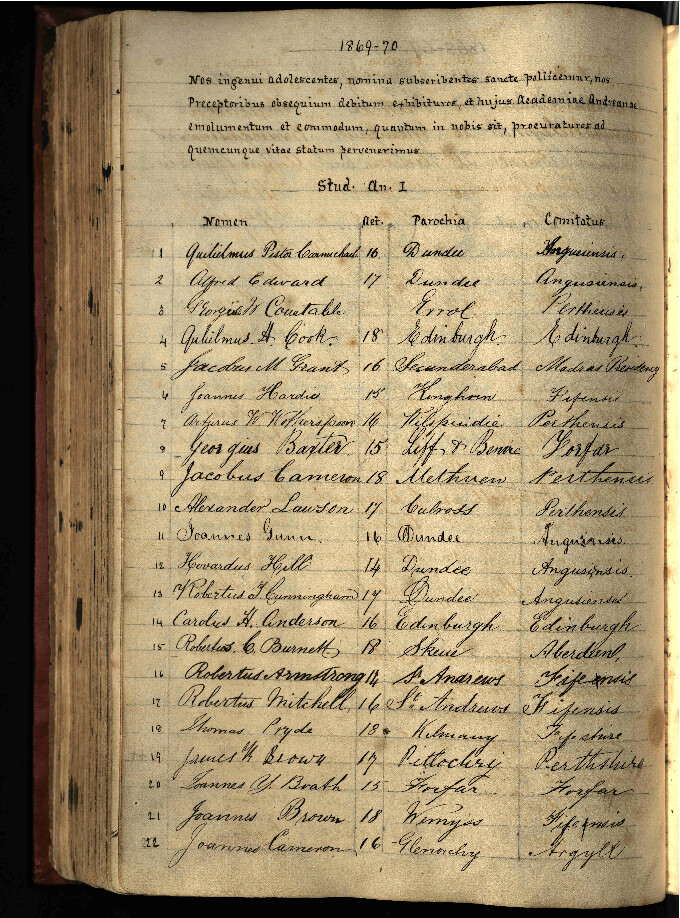 1869-70
Nos ingenui adolescentes, nomina subscribentes sancte pollicemur, nos
Preceptoribus obsequium debitum exhibituros, et hujus Academiae Andreanae
emolumentum et commodum, quantum in nobis sit, procuraturos ad
quemcunque vitae statum pervenerimus
Stud. An. I
Nomen Aet. Parochia Comitatus
1 Gulielmus Pestor Carmichael 16 Dundee Angusiensis.
2 Alfred Edward 17 Dundee Angusiensis.
3 Georgius W Constable Errol Perthensis
4 Gulielmus H. Cook. 18 Edinburgh Edinburgh.
5 Jacobus M Grant 16 Secunderabad Madras Residency
6 Joannes Hardie 15 Kinghorn Fifensis
7 Arturus W. Wotherspoon 16 Kilspindie Perthensis
8 Georgius Baxter 15 Liff & Benvie Forfar
9 Jacobus Cameron 18 Methven Perthensis
10 Alexander Lawson 17 Culross Perthensis
11 Joannes Gunn. 16 Dundee Angusensis
12 Hovardus Hill 14 Dundee Angusiensis.
13 Robertus J. Cunningham 17 Dundee Angusiensis
14 Carolus H. Anderson 16 Edinburgh Edinburgh
15 Robertus C. Burnett 18 Skene Aberdeen,
16 Robertus Armstrong 14 St Andrews Fifensis
17 Robertus Mitchell, 16 St. Andrews Fifensis
18 Thomas Pryde 18 Kilmany Fifeshire
19 James Brown 17 Pitlochry Perthshire
20 Joannes Y. Boath 15 Forfar Forfar
21 Joannes Brown 18 Wemyss Fifensis
22 Joannes Cameron 16 Glenorchy Argyll